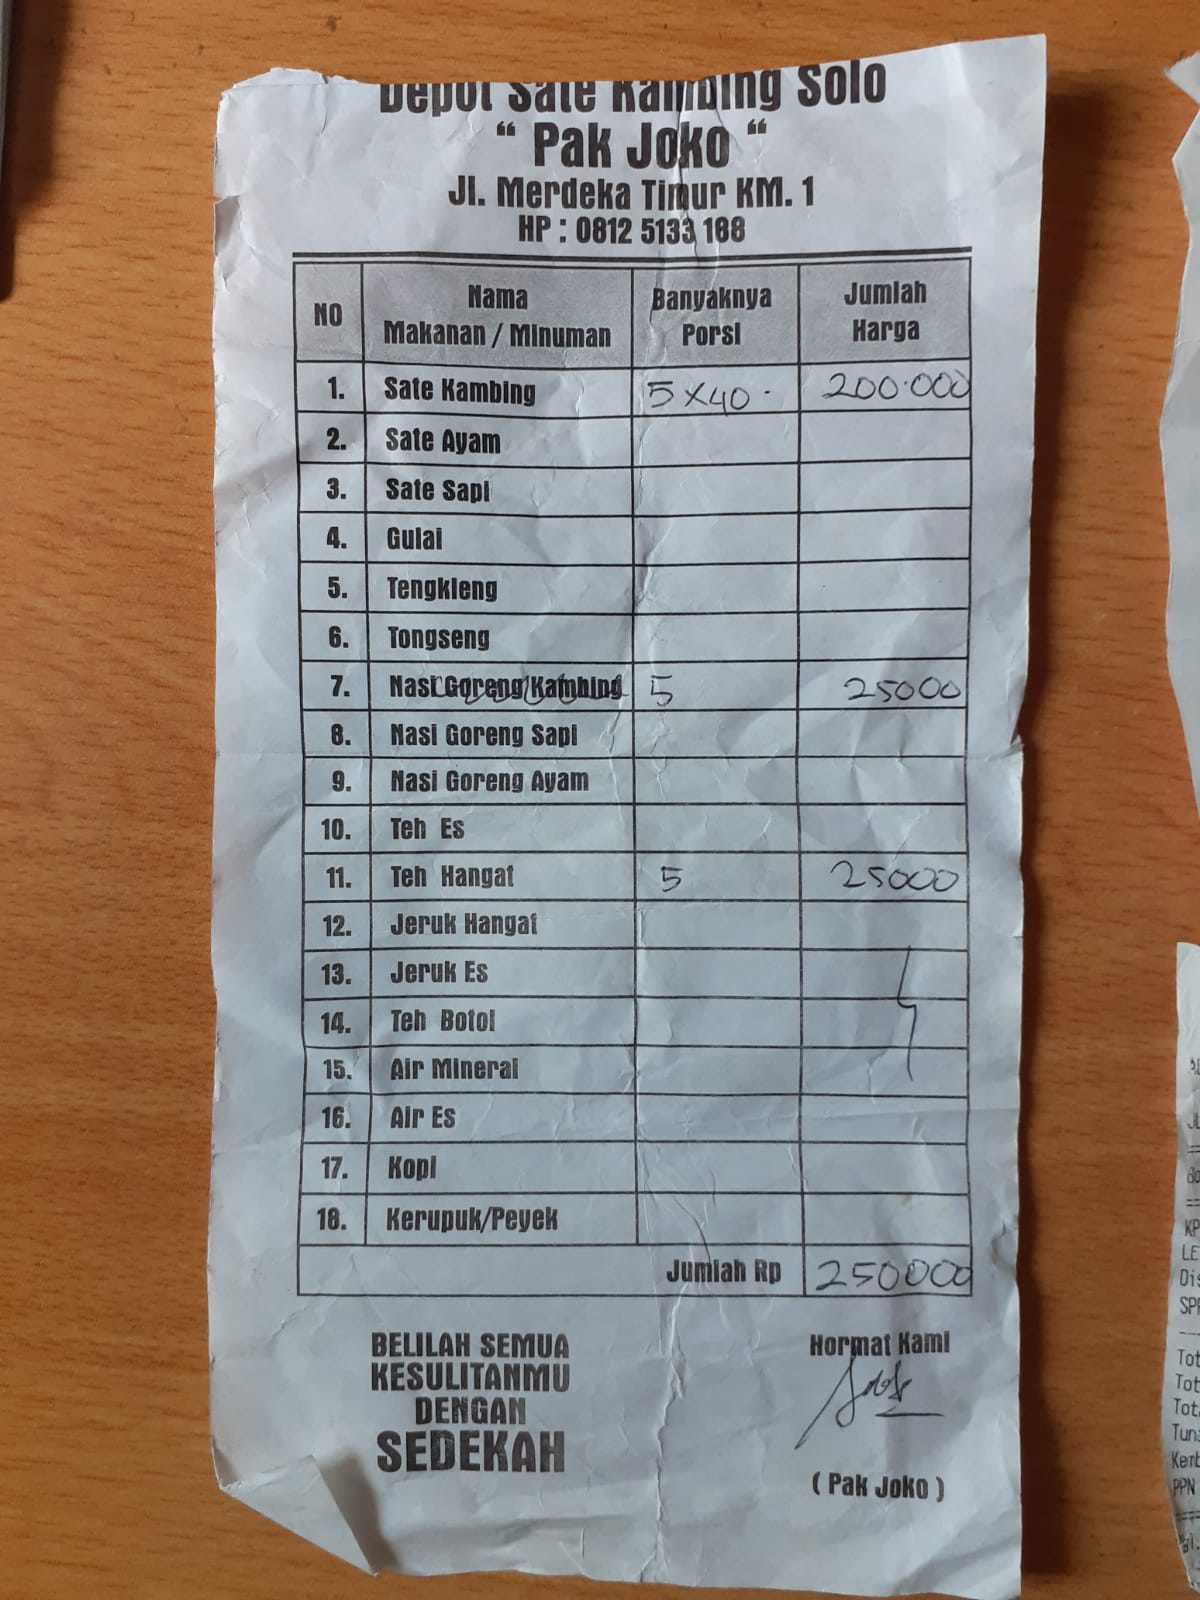 Depot Sate Kambing Solo
“ Pak Joko “
Jl. Merdeka Timur KM. 1
HP : 0812 5133 188
NO Nama Makanan / Minuman Banyaknya Porsi Jumlah Harga
1. Sate Kambing 5 X 40 - 200.000
2. Sate Ayam
3. Sate Sapi
4. Gulai
5. Tengkleng
6. Tongseng
7. Nasi Goreng Kambing 5 25000
8. Nasi Goreng Sapi
9. Nasi Goreng Ayam
10. Teh Es
11. Teh Hangat 5 25000
12. Jeruk Hangat
13. Jeruk Es
14. Teh Botol
15. Air Mineral
16. Air Es
17. Kopi
18. Kerupuk/Peyek
Jumlah Rp 250000
BELILAH SEMUA
KESULITANMU
DENGAN
SEDEKAH
Hormat Kami
( Pak Joko )
KP
LE
Dis
SPP
Tot
Tot
Tot
Tuna
Kemb
PPN